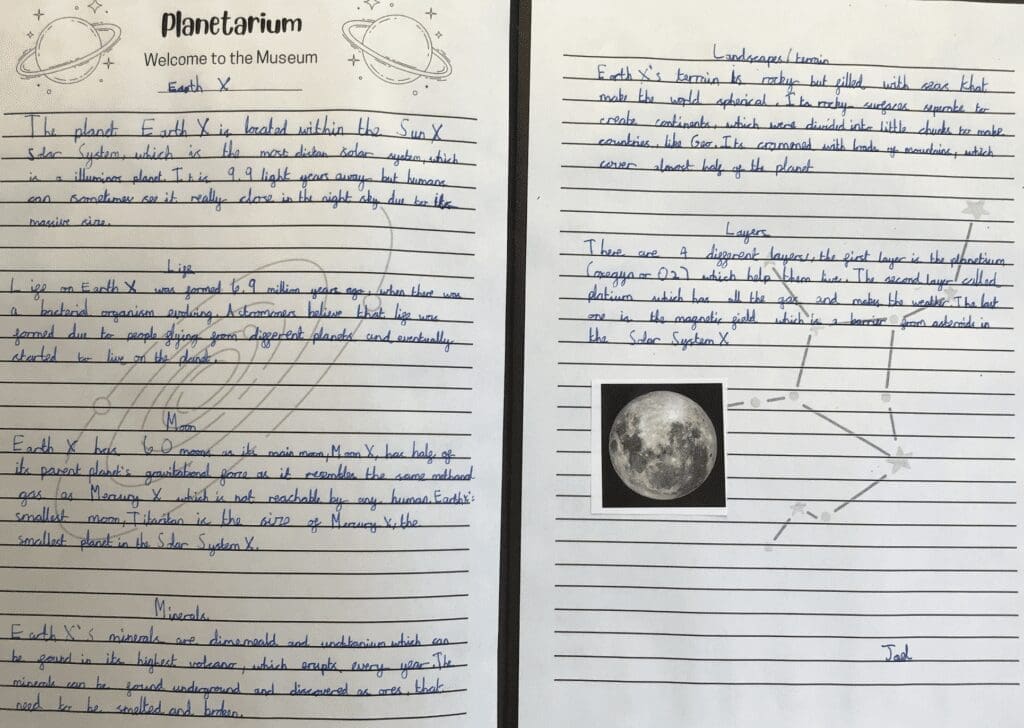 Planetarium
Welcome to the Museum
Earth X
The planet Earth X is located within the Sun X
Solar System, which is the most distan solar system, which
is a illuminos planet. It is 9.9 light years away but humans
can sometimes see it really close in the night sky due to its
massive size.
Life
Life on Earth X was formed 6.9 million years ago, when there was
a bacterial organism evolving. Astronomers believe that life was
formed due to people flying from different planets and eventually
started to live on the planet.
Moon
Earth X has 60 moons as its main moon, Moon X, has half of
its parent planet's gravitational force as it resembles the same
gas as Mercury X which is not reachable by any human. Earth X's
smallest moon, Titaritan is the size of Mercury X, the
smallest planet in the Solar System X.
Minerals
Earth X's minerals are and which can
be found in its highest volcano, which erupts every year. The
minerals can be found underground and discovered as ores, that
need to be smelted and broken.
Landscapes/terrain
Earth X's terrain is rocky but filled with seas that
make the world spherical. Its rocky surfaces seperate to
create continents, which were divided into little chunks to make
countries, like Geo. Its crammed with loads of mountains, which
cover almost half of the planet
Layers
There are 4 different layers, the first layer is the planetium
(oxegyn or O2) which help them live. The second layer called
platium which has all the gas and makes the weather. The last
one is the magnetic field which is a barrier from asteroids in
the Solar System X
Jael